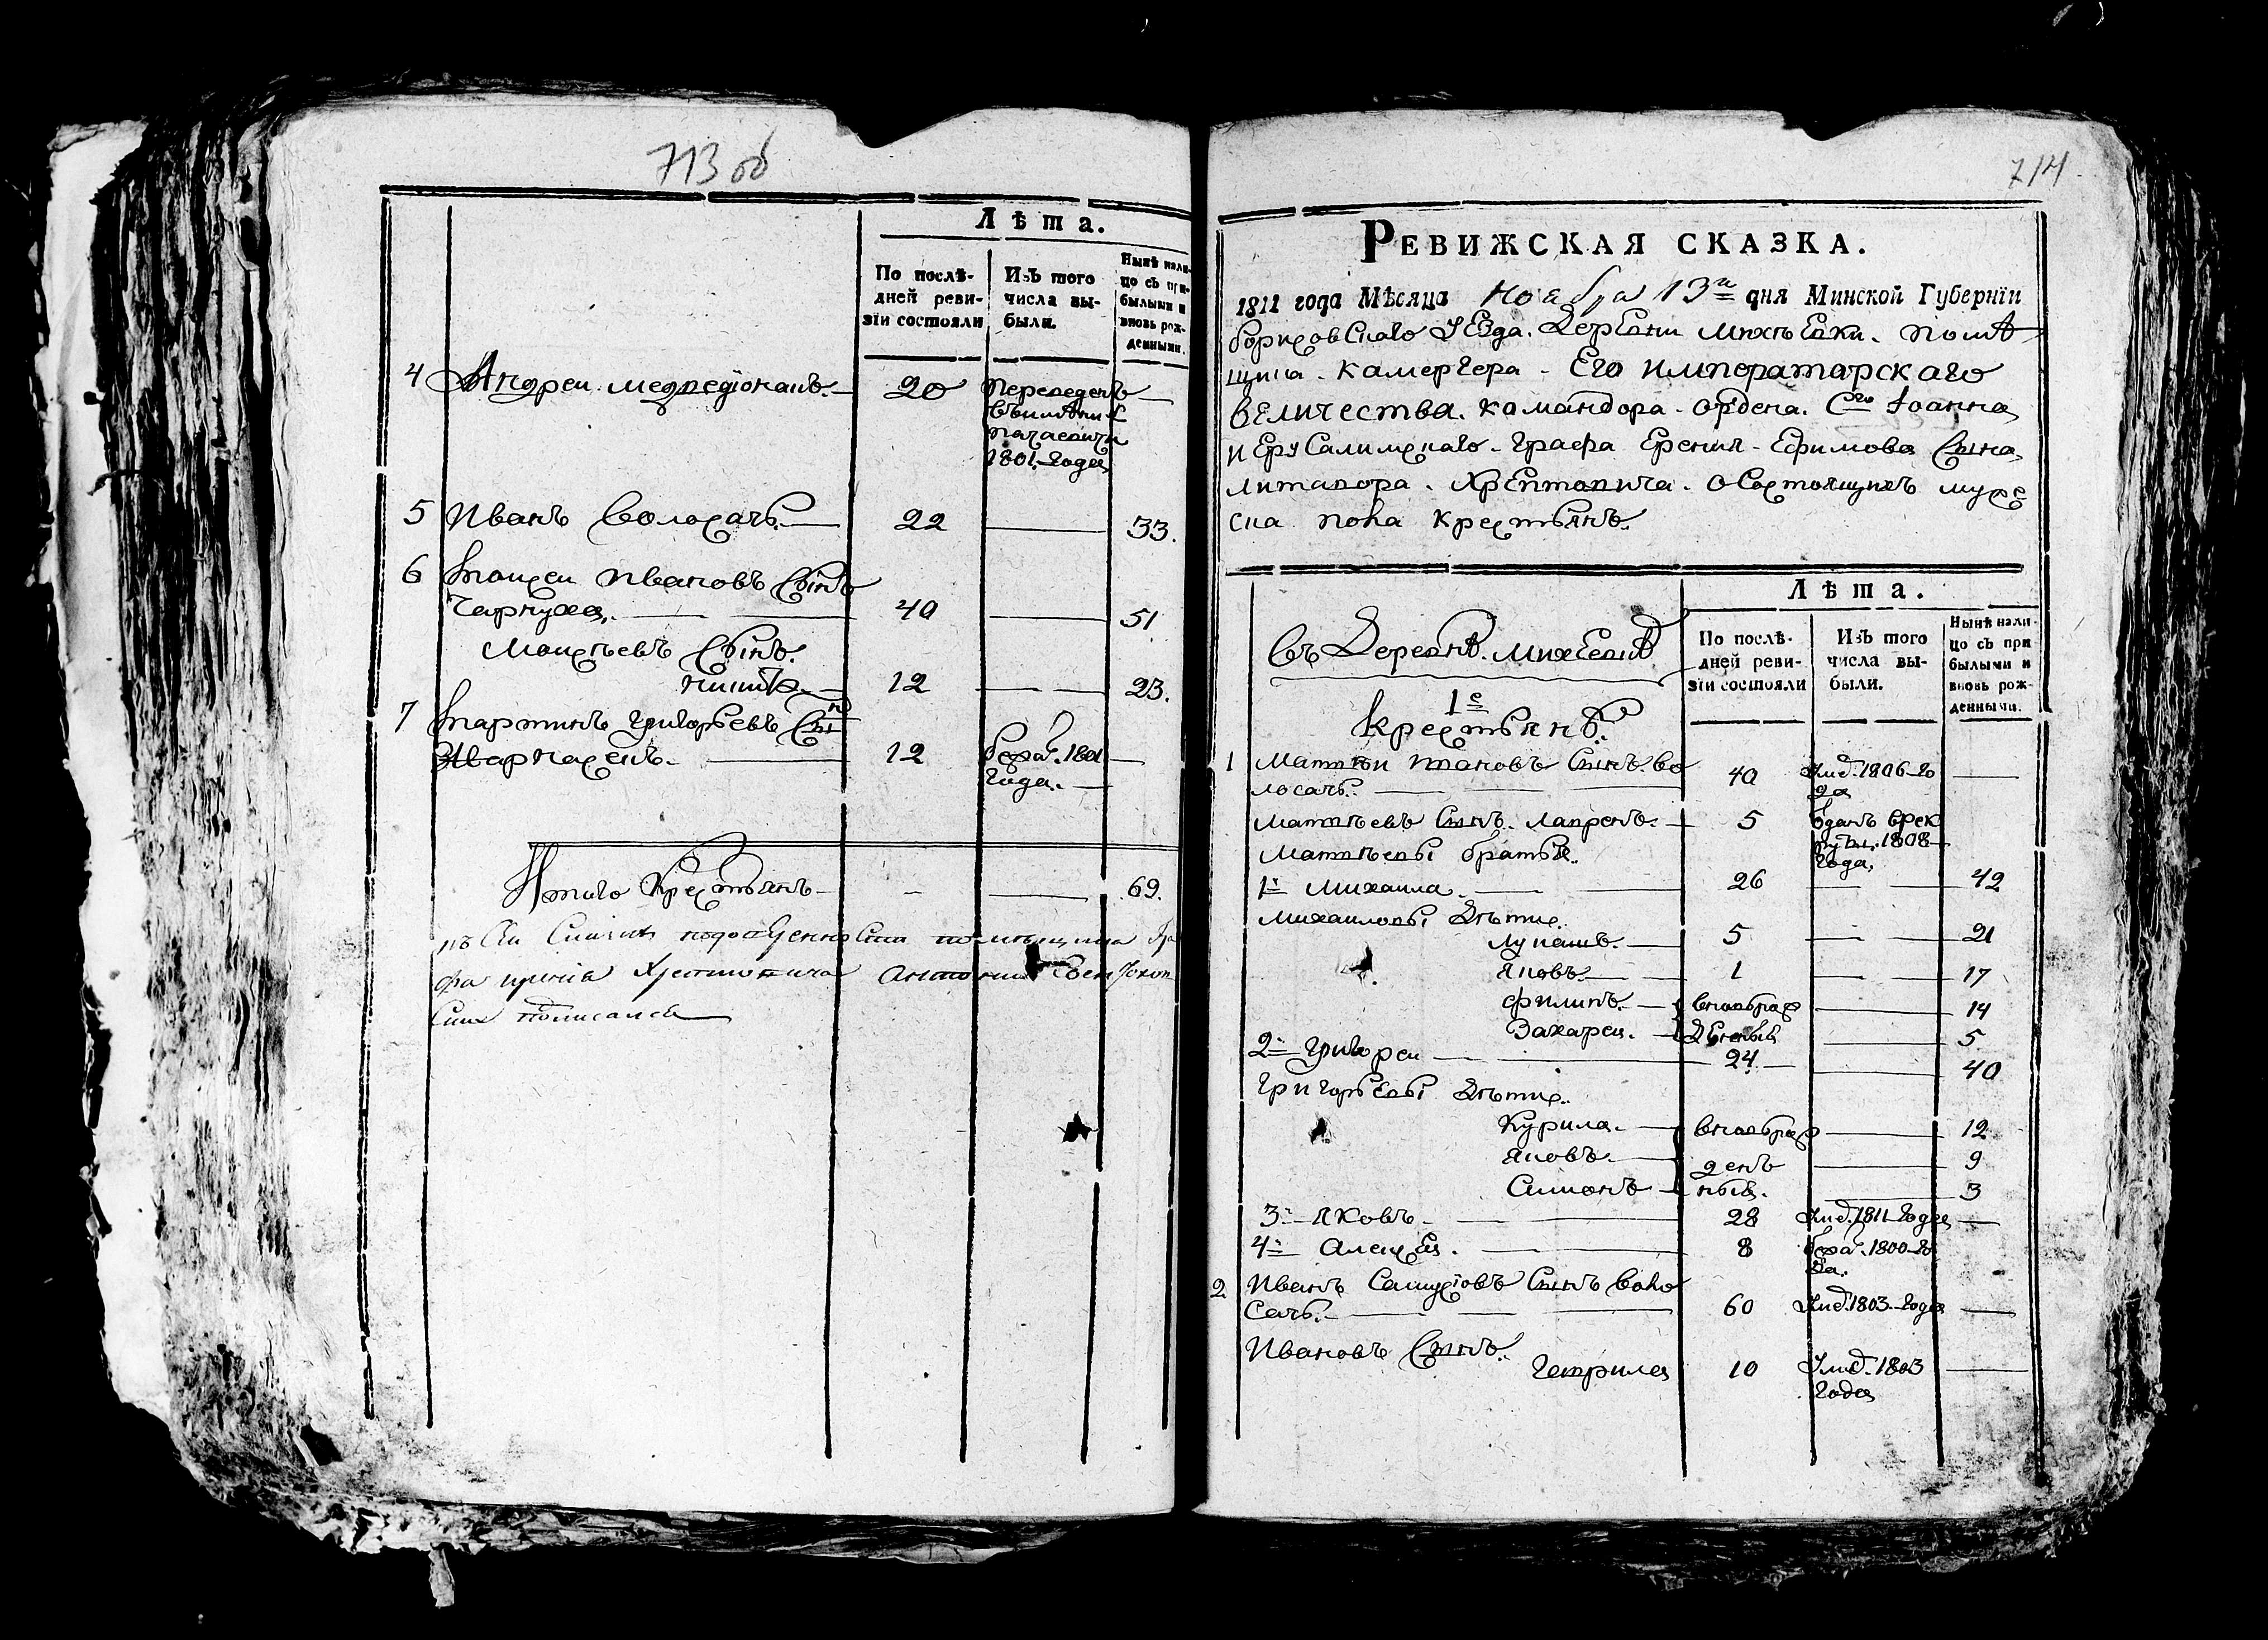 713 об
Лѣта.
По послѣ-
дней реви-
зїи состояли
Изъ того
числа вы-
были.
Нынѣ нали-
цо съ при-
былыми и
вновь рож-
денными.
4 Андреи 20 Переведенъ
1801 года
5 Иванъ Волосачь 22 33.
6 Моисеи Ивановъ Сынъ
40 51
Моисѣевъ Сынъ.
Никита 12 23.
7 Мартинъ Григорьевъ Сынъ
12 бежа. 1801
года.
Итого Крестьянъ 69.
къ сей Сказки помѣщика Гра
фа Хрептовича
подписался
714
Ревижская сказка.
1811 года Мѣсяца Ноября 13го дня Минской Губернїи
Борисовскаго уезда. Деревни Михѣевки. помѣ
щика. камергера. Его императорскаго
величества. командора. ордена. Сго Іоанна
иерусалимскаго. графа Ефимова Сына
Литавора. Хрептовича. о состоящихъ мужес
ка пола крестьянъ.
Въ Деревнѣ. Михеевкѣ
1е
Крестьянъ.
Лѣта.
По послѣ-
дней реви-
зїи состояли
Изъ того
числа вы-
были.
Нынѣ нали-
цо съ при
былыми и
вновь рож-
денными.
1 Матвѣи Сынъ. Во
лосачь. 40 Умѣ. 1806 го
да
Матвѣевъ Сынъ. Лавренъ. 5 Одань врек
руты. 1808
года.
Матвѣевы братья.
1й Михаила 26 42
Михаиловы Дѣти.
Лукашъ. 5 21
Яковъ 1 17
Филипъ. вновьрож 14
Захареи. Денныя 5
2й Григореи 24 40
Григорьевы Дѣти.
Курила. вновьрож 12
Яковъ. ден 9
Симонъ ныя. 3
3й Яковъ 28 Умѣ. 1811 года
4й Алексеи. 8 бежа. 1800 го
да.
2 Иванъ Сынъ Воло
сачь. 60 Умѣ. 1803 года
Ивановъ Сынъ.
Гаврила 10 Умѣ. 1803
года